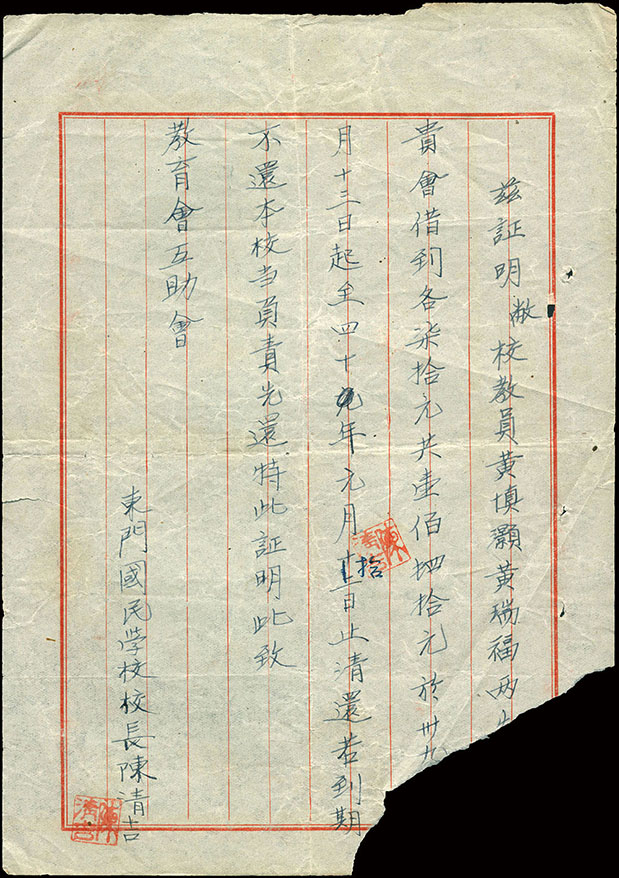 茲証明敝校教員黃填灝黃瑞福兩
貴會借到各柒拾元共壹佰四拾元於卅九
月十三日起至四十年元月拾日止清還若到期
不還本校当負責先還特此証明此致
教育會互助會
東門國民学校校長陳清吉